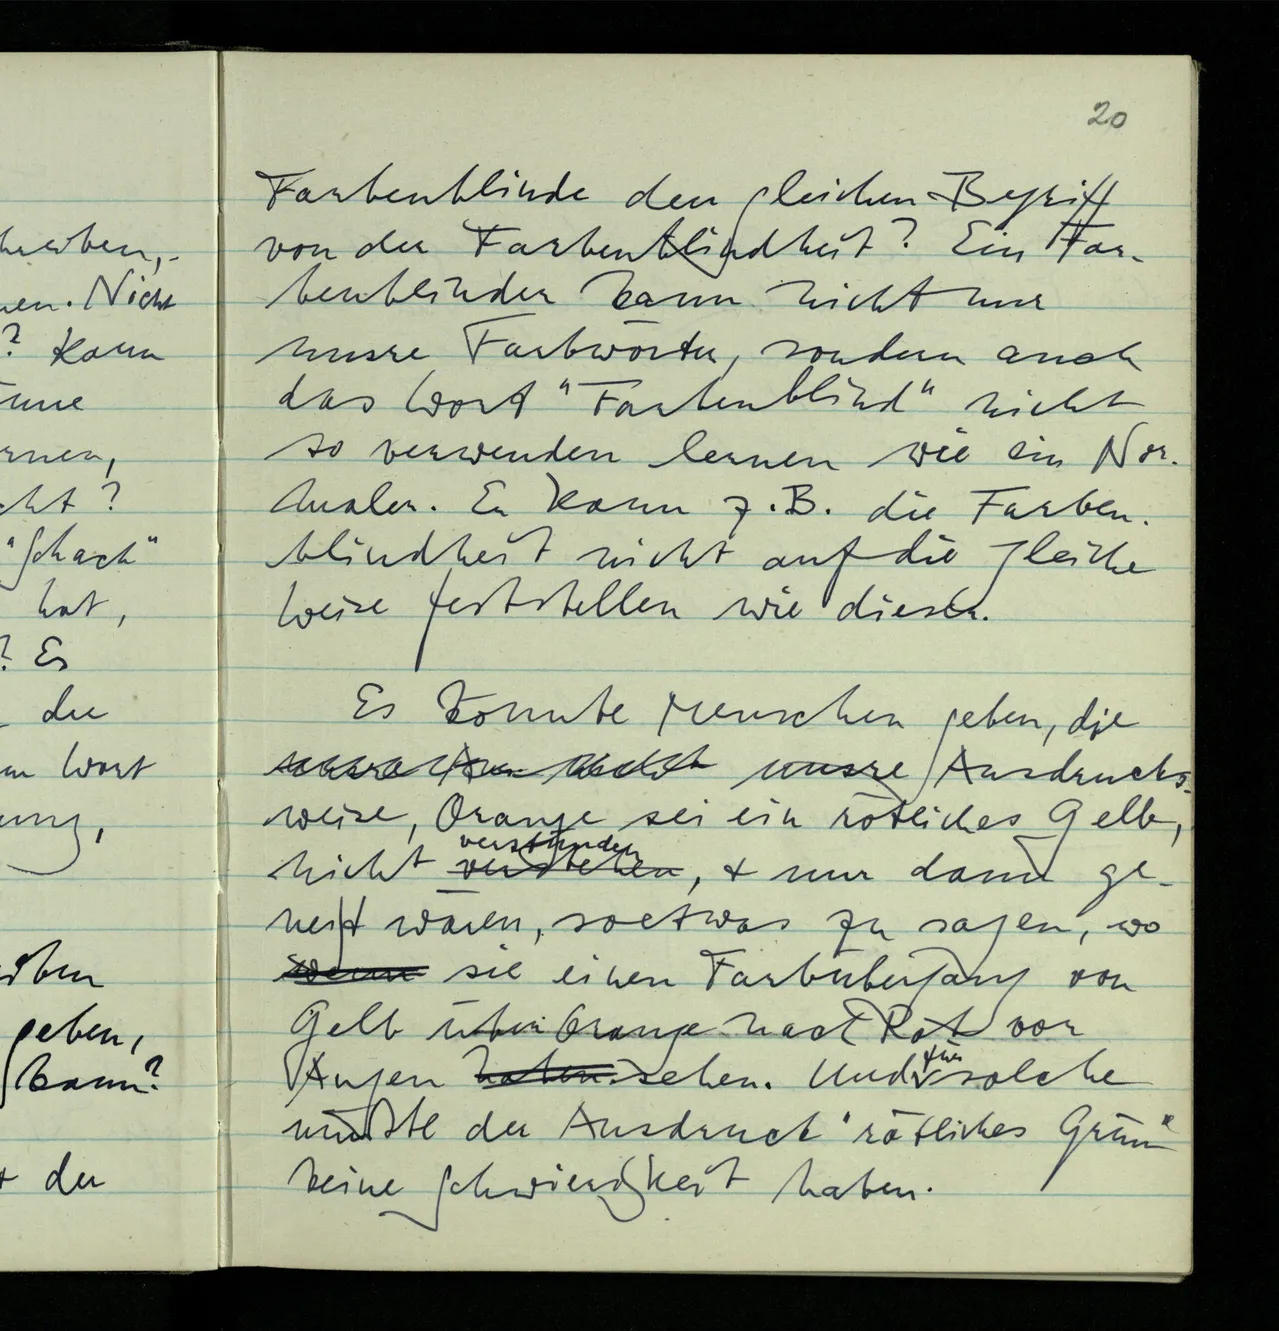 20
Farbenblinde den gleichen Begriff
von der Farbenblindheit? Ein Far-
benblinder kann nicht nur
unsre Farbwörter, sondern auch
das Wort "Farbenblind" nicht
so verwenden lernen wie ein Nor-
maler. Er kann z.B. die Farben-
blindheit nicht auf die gleiche
Weise feststellen wie dieser.
Es könnte Menschen geben, die
unsre Ausdrucks-
weise, Orange sei ein rötliches Gelb,
verstünden
nicht verstehen, + nur dann ge-
neigt wären, soetwas zu sagen, wo
wenn sie einen Farbübergang von
Gelb über Orange nach Rot vor
Augen haben sehen. Und für solche
müßte der Ausdruck "rötliches Grün"
keine Schwierigkeit haben.
hreiben,-
nen. Nicht
? Kann
rnen,
cht?
"Schach"
hat,
? Es
der
m Wort
ung,
geben,
kann?
+ der